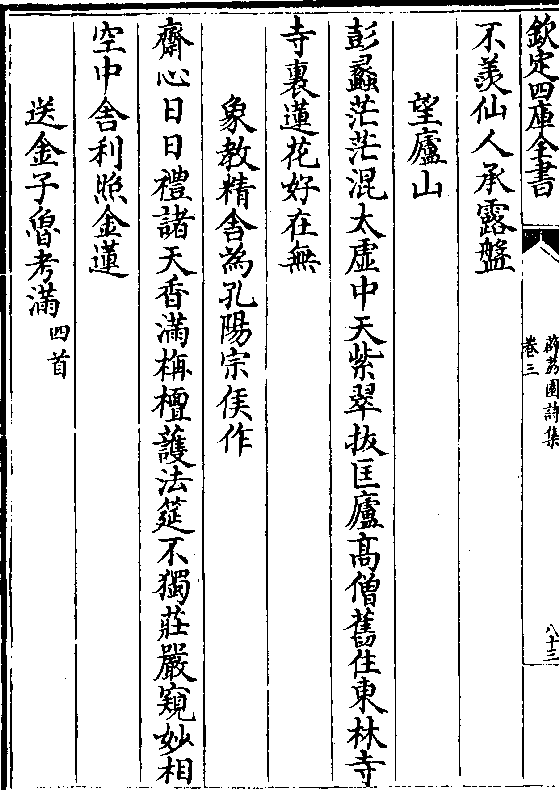 欽定四庫全書
薜荔園詩集
卷三
八十三
不羨仙人承露盤
望廬山
彭蠡茫茫混太虛中天紫翠拔匡廬高僧舊住東林寺
寺裏蓮花好在無
象教精舍為孔陽宗侯作
齋心日日禮諸天香滿栴檀護法筵不獨莊嚴窺妙相
空中舍利照金蓮
送金子魯考滿四首